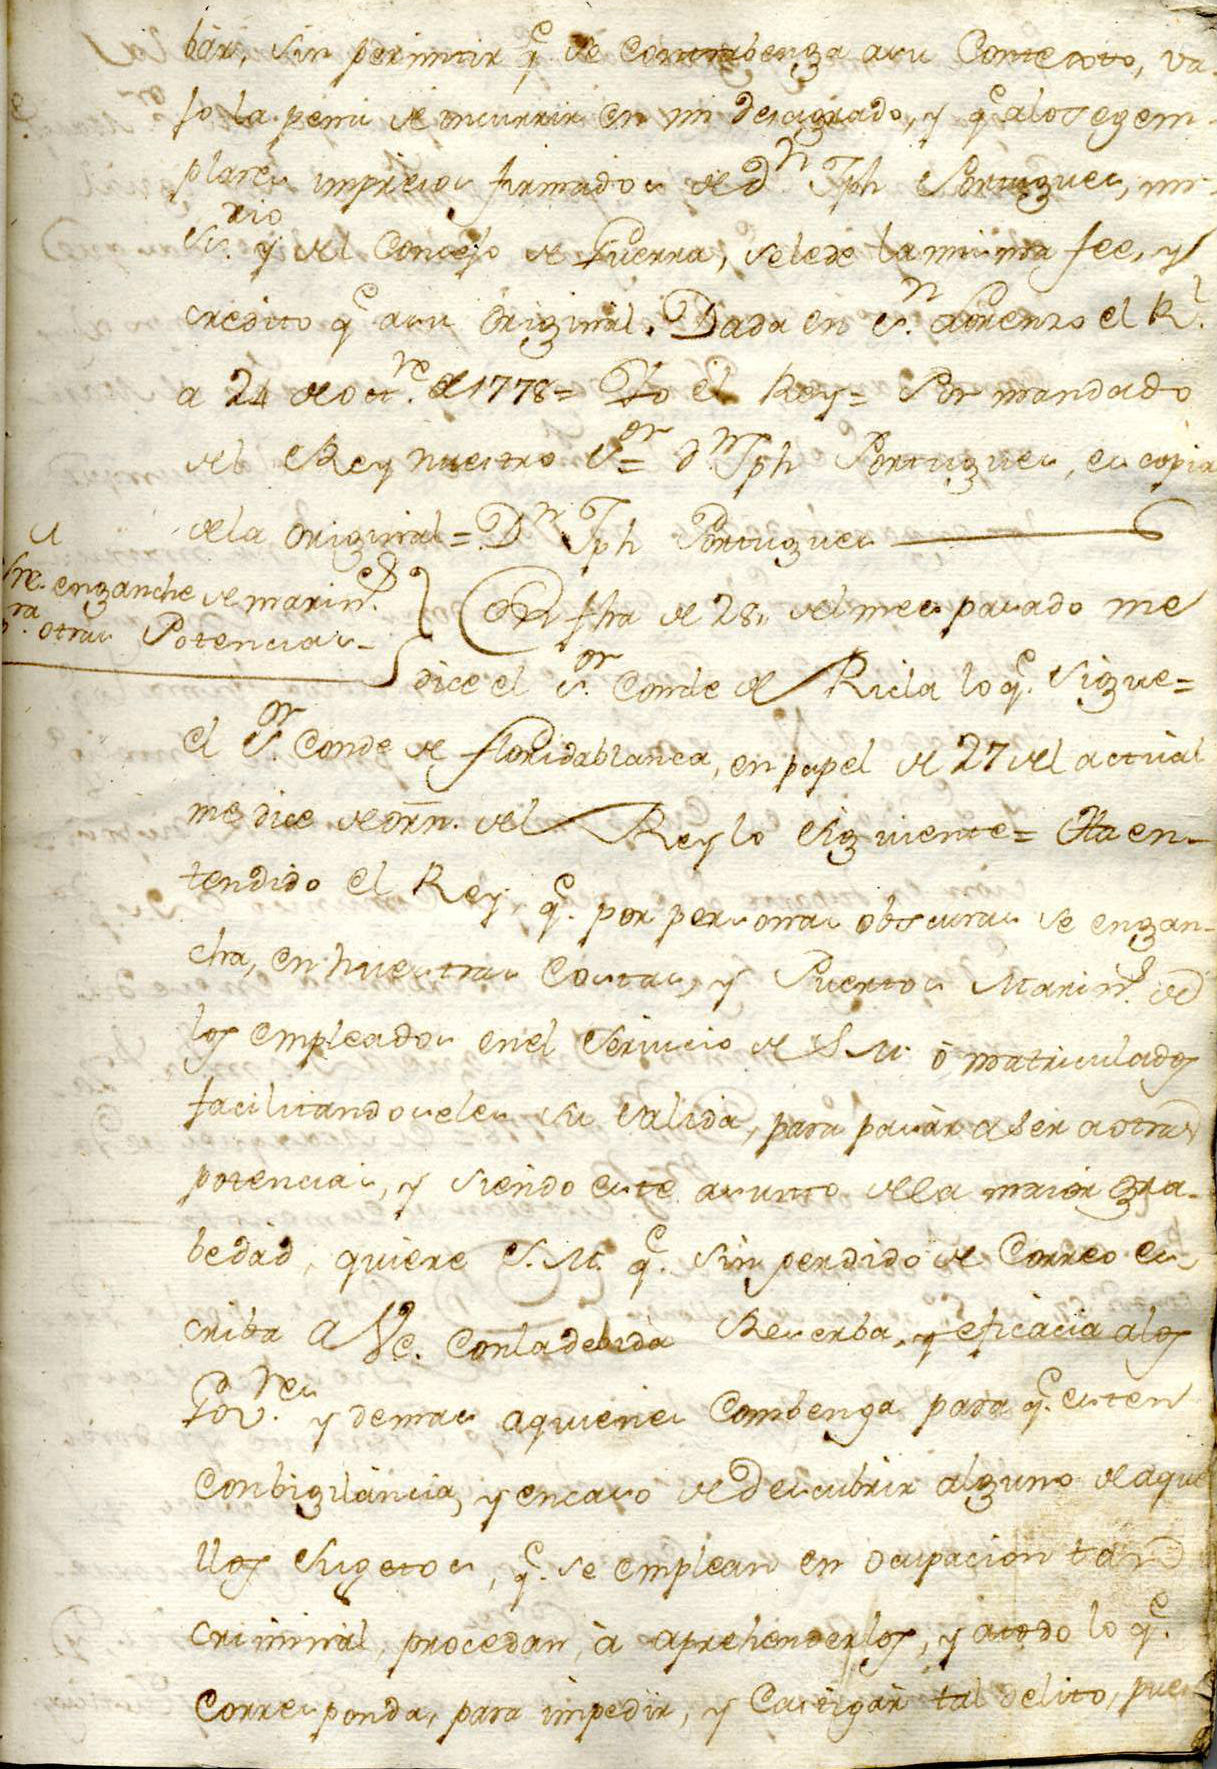 bàr, sin permitir q.e se Contrabenga a su Contexto, va-
jo la pena de incurrir en mi desagrado, y q.e a los egem-
plares impresos firmados de d.n Jph Portugues, mi
S.rio y del Concejo de Guerra, se le de la misma fee, y
credito q.e a su Original. Dada en S.n Lorenzo el R.l
a 24 de oct.re de 1778= Yo el Rey= Por mandado
del Rey nuestro S.or= d.n Jph Portugues, es copia
dela Original= D.n Jph Portugues
Sre. enganche de marin.s
p.ra otras Potencias-
Con fha de 28,, del mes pasado me
dice el S.or Conde de Ricla lo q.e Sigue=
el S.or Conde de floridablanca, en papel de 27 del actual
me dice de orn. del Rey lo Siguiente= Ha en-
tendido el Rey, q.e por personas obscuras se engan-
cha, en nuestras Costas, y Puertos Marin.s de
los empleados en el Servicio de S M. ò matriculados
facilitandoseles su salida, para pasàr a Ser a otras
potencias, y siendo este asunto dela maior gra-
bedad, quiere S. M. q.e sin perdido de Correo es-
criba a Ve. Con la debida Reserba, y eficàcia a los
Gov.res y demas a quienes Combenga para q.e esten
Con bigilància, y en caso de descubrir alguno de aque
llos Sugetos, q.e se emplean en ocupacion tan
criminàl, procedan, à aprehenderlos, y a todo lo q.e
Corresponda, para impedir, y Castigàr tal delito, pues